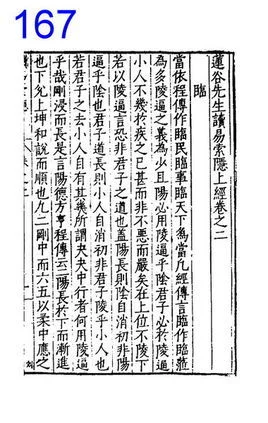 167
蓮谷先生讀易索隱上經卷之二
臨
當依程傳作臨民臨事臨天下為當凡經傳言臨作臨蒞
為多陵逼之義為少且陽必用陵逼乎陰君子必於陵逼
小人不幾於疾之已甚而非不惡而嚴矣在上位不陵下
若以陵逼言恐非君子之道也蓋陽長則陰自消初非陽
逼乎陰也君子道長則小人自消初非君子陵乎小人也
若君子之去小人自有其幾所謂夬夬中行者何用陵逼
乎哉剛浸而長是言陽德方亨程傳云二陽長於下而漸進
也下兌上坤和說而順也九二剛中而六五以柔中應之